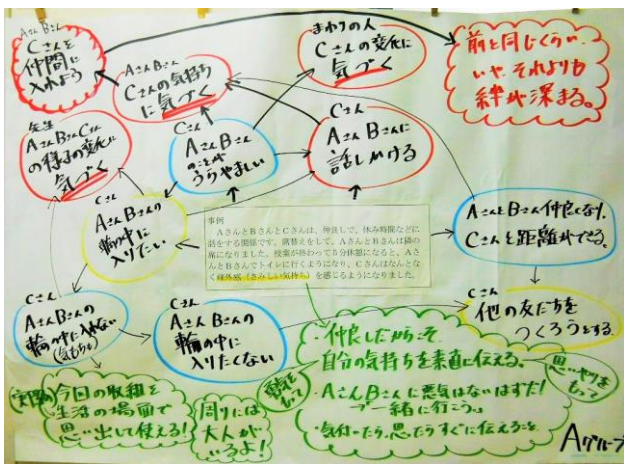 Aさん Bさん
Cさんを
仲間に
入れよう
Aさん Bさん
Cさんの気持ち
に気づく
まわりの人
Cさんの変化に
気づく
前と同じくらい、
いや、それよりも
絆が深まる。
先生
Aさん Bさん Cさん
の様子の変化に
気づく
Cさん
Aさん Bさん
のことが
うらやましい
Cさん
Aさん Bさんに
話しかける
Cさん
Aさん Bさんの
輪の中に
入りたい
事例
AさんとBさんとCさんは、仲良しで、休み時間などに
話をする関係です。席替えをして、AさんとBさんは隣の
席になりました。授業が終わって5分休憩になると、Aさ
んとBさんでトイレに行くようになり、Cさんはなんとな
く疎外感（さみしい気持ち）を感じるようになりました。
AさんとBさん仲良くなり、
Cさんと距離ができる。
Cさん
Aさん Bさんの
輪の中に入れない
(気もち)
Cさん
Aさん Bさんの
輪の中に
入りたくない
Cさん
他の友だちを
つくろうとする。
今回の取組を
生活の場面で
思い出して使える!
周りには
大人が
いるよ!
勇気を
もって
・仲良しだからこそ
自分の気持ちを素直に伝える。
・Aさん Bさんに悪気はないはずだ!
一緒に行こう。
・気付いたら、思ったらすぐに伝えること
思いやりを
もって
Aグループ